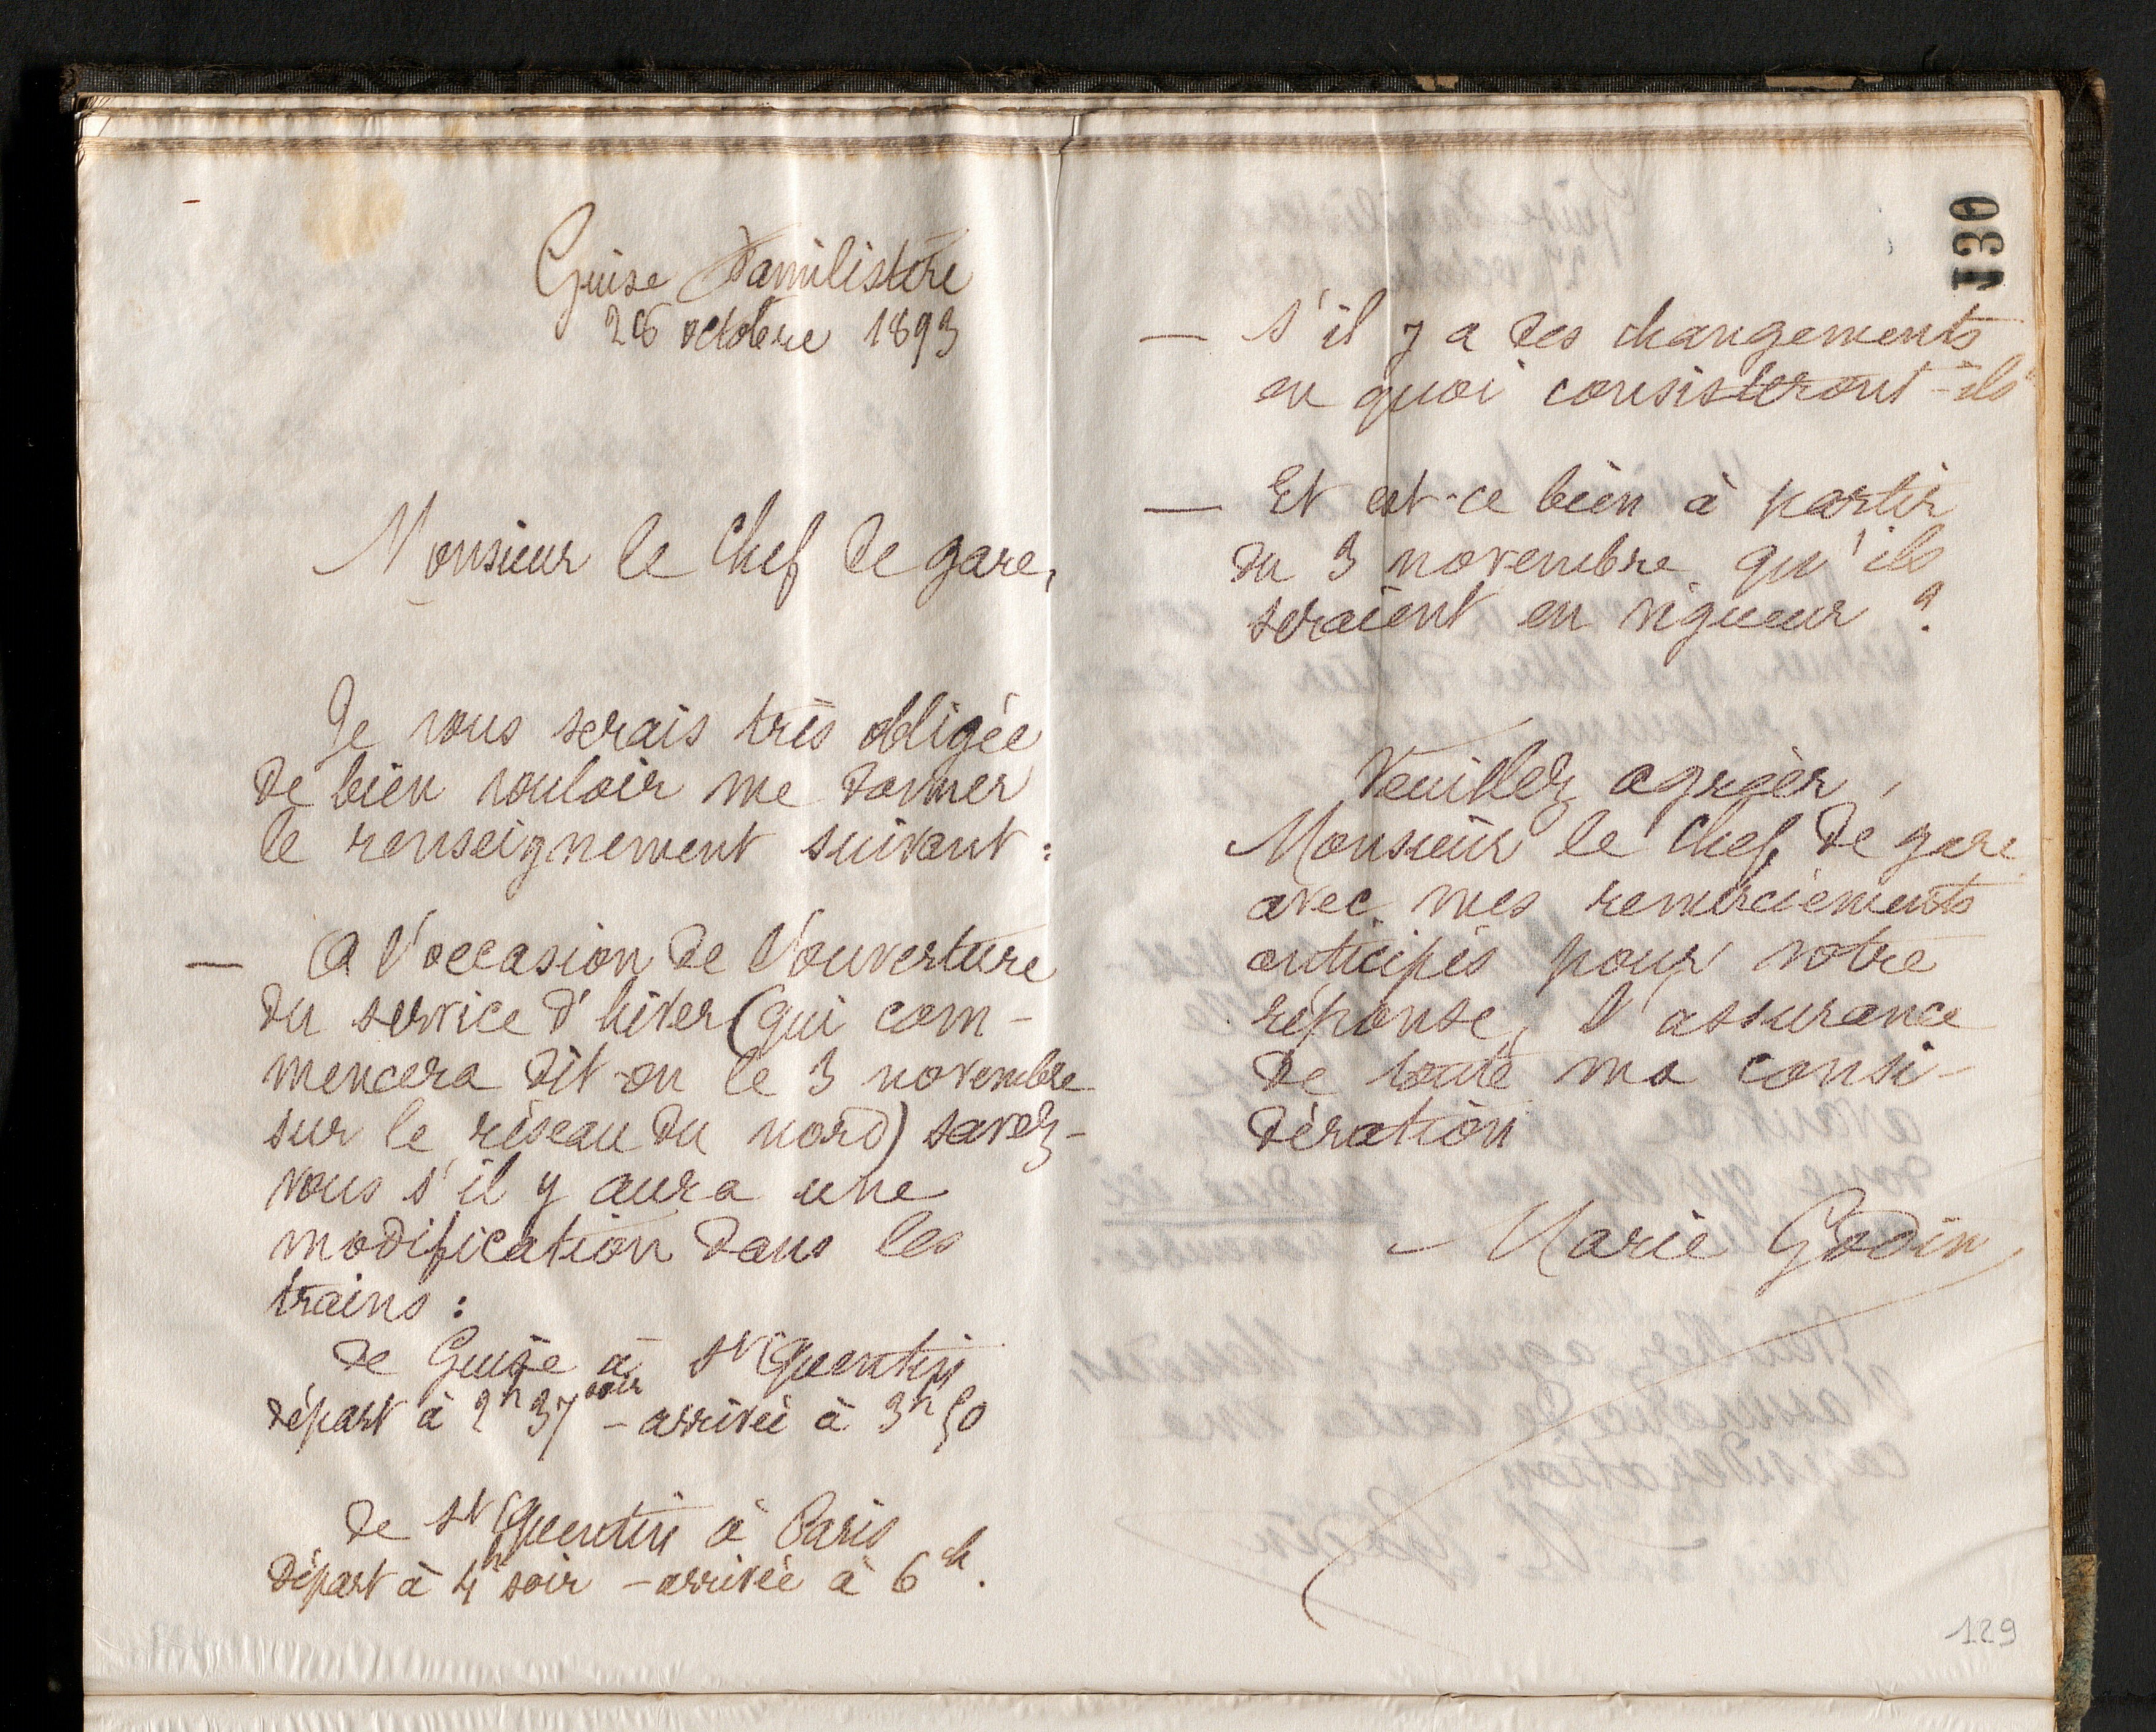 Guise Familistère
26 octobre 1893
Monsieur le Chef de gare,
Je vous serais très obligée
de bien vouloir me donner
le renseignement suivant :
— A l'occasion de l'ouverture
du service d'hiver (qui com-
mencera dit-on le 3 novembre
sur le réseau du nord) savez-
vous s'il y aura une
modification dans les
trains :
de Guise à St Quentin
départ à 2h 37 soir - arrivée à 3h 50
de St Quentin à Paris
départ à 4h soir - arrivée à 6h.
130
— S'il y a des changements
en quoi consisteront-ils
— Et est-ce bien à partir
du 3 novembre qu'ils
seraient en vigueur ?
Veuillez agréer,
Monsieur le Chef de gare
avec mes remerciements
anticipés pour votre
réponse, l'assurance
de toute ma consi-
dération
Marie Godin
129